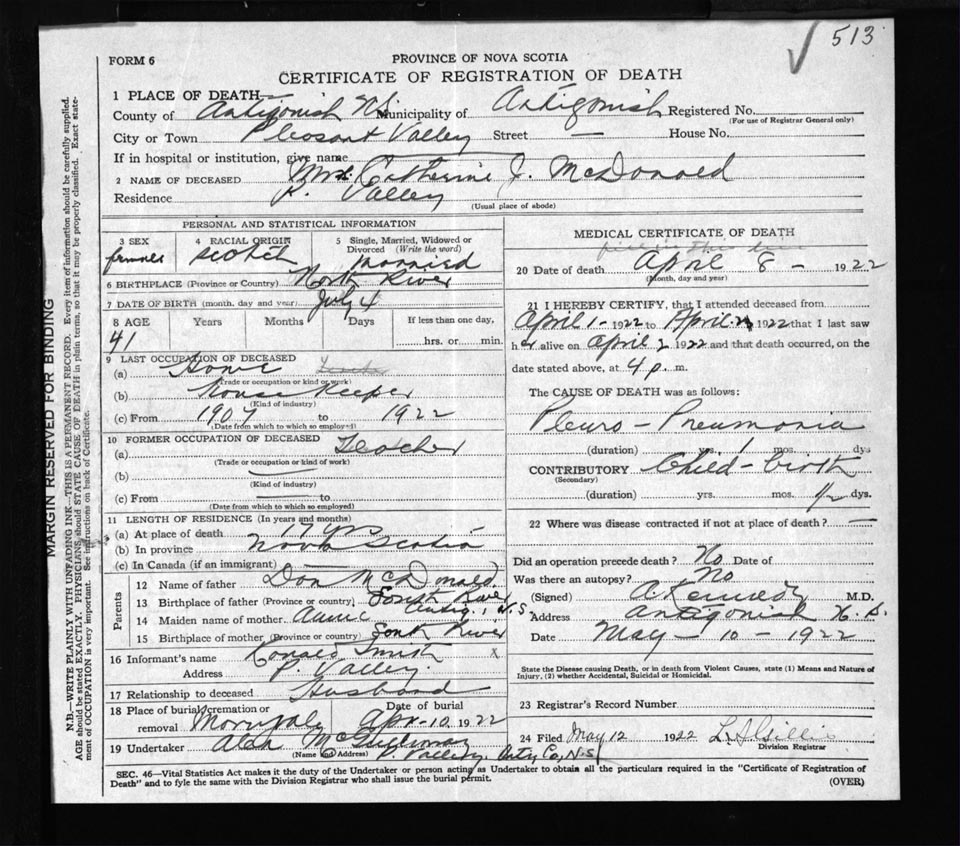 513
FORM 6
PROVINCE OF NOVA SCOTIA
CERTIFICATE OF REGISTRATION OF DEATH
1 PLACE OF DEATH—
County of Antigonish N.S. Municipality of Antigonish Registered No.
(For use of Registrar General only)
City or Town Pleasant Valley Street — House No.
If in hospital or institution, give name
2 NAME OF DECEASED Mrs. Catherine J. McDonald
Residence P. Valley
(Usual place of abode)
PERSONAL AND STATISTICAL INFORMATION
3 SEX female
4 RACIAL ORIGIN Scotch
5 Single, Married, Widowed or Divorced (Write the word) married
6 BIRTHPLACE (Province or Country) North River
7 DATE OF BIRTH (month, day and year) July 4
8 AGE Years Months Days If less than one day,
41 hrs. or min.
9 LAST OCCUPATION OF DECEASED
(a) Home
(Trade or occupation or kind of work)
(b) house keeper
(Kind of industry)
(c) From 1907 to 1922
(Date from which to which so employed)
10 FORMER OCCUPATION OF DECEASED
(a) Teacher
(Trade or occupation or kind of work)
(b) —
(Kind of industry)
(c) From — to
(Date from which to which so employed)
11 LENGTH OF RESIDENCE (In years and months)
(a) At place of death 17 yrs
(b) In province Nova Scotia
(c) In Canada (if an immigrant) —
Parents
12 Name of father Don McDonald
13 Birthplace of father (Province or country) South River Antig., N.S.
14 Maiden name of mother Annie
15 Birthplace of mother (Province or country) South River
16 Informant's name Ronald Smith x
Address P. Valley
17 Relationship to deceased Husband
18 Place of burial, cremation or removal Date of burial Apr-10, 1922
19 Undertaker Alex McGillivray
(Name and Address) P. Valley, Antig Co, N.S.
MEDICAL CERTIFICATE OF DEATH
20 Date of death April 8 - 1922
(Month, day and year)
21 I HEREBY CERTIFY, that I attended deceased from
April 1- 1922 to April 2 1922 that I last saw
her alive on April 2 1922 and that death occurred, on the
date stated above, at 4 p. m.
The CAUSE OF DEATH was as follows:
Pleuro-Pneumonia
(duration) yrs. 1 mos. dys
CONTRIBUTORY Child-birth
(Secondary)
(duration) yrs. mos. 1/2 dys.
22 Where was disease contracted if not at place of death? —
Did an operation precede death? No Date of
Was there an autopsy? No
(Signed) A. Kennedy M.D.
Address Antigonish N.S.
Date May - 10 - 1922
State the Disease causing Death, or in death from Violent Causes, state (1) Means and Nature of
Injury, (2) whether Accidental, Suicidal or Homicidal.
23 Registrar's Record Number
24 Filed May 12 1922 L. J. Gillis
Division Registrar
SEC. 46—Vital Statistics Act makes it the duty of the Undertaker or person acting as Undertaker to obtain all the particulars required in the "Certificate of Registration of
Death" and to fyle the same with the Division Registrar who shall issue the burial permit.
(OVER)
MARGIN RESERVED FOR BINDING
N.B.—WRITE PLAINLY WITH UNFADING INK—THIS IS A PERMANENT RECORD. Every item of information should be carefully supplied.
AGE should be stated EXACTLY. PHYSICIANS should STATE CAUSE OF DEATH in plain terms, so that it may be properly classified. Exact statement of OCCUPATION is very important. See instructions on back of Certificate.